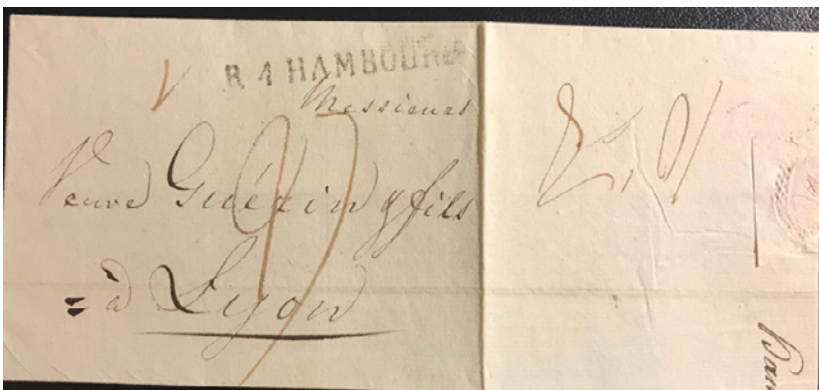 R 4 HAMBOURG
Messieurs
Veuve Guérin & fils
à Lyon